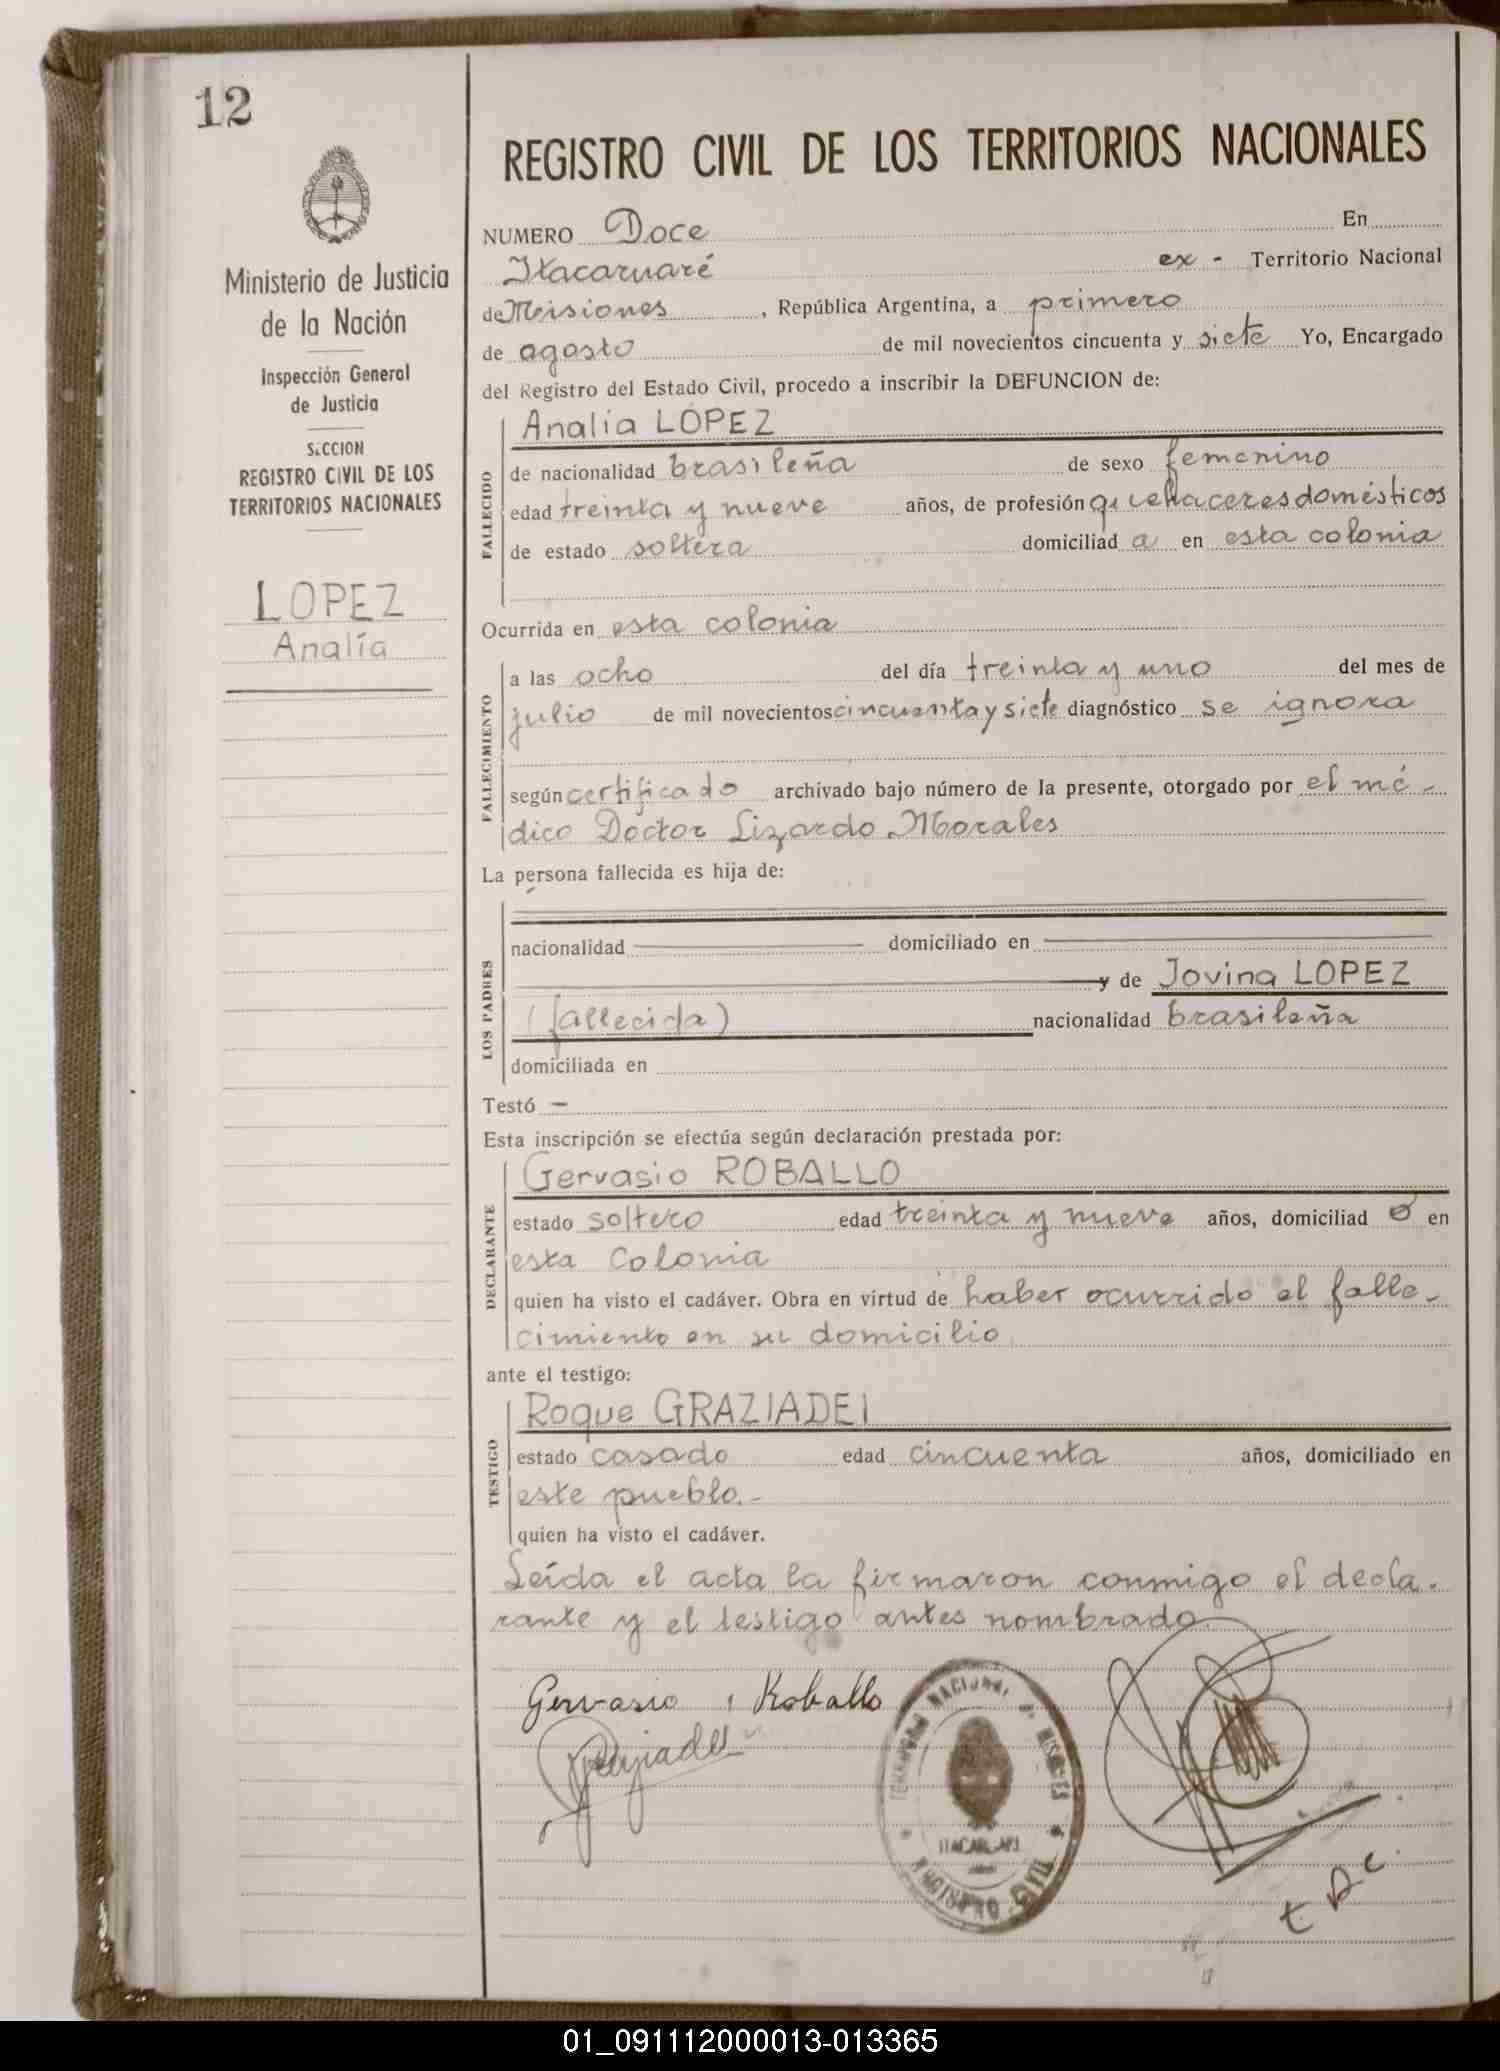 12
Ministerio de Justicia
de la Nación
Inspección General
de Justicia
SECCION
REGISTRO CIVIL DE LOS
TERRITORIOS NACIONALES
LOPEZ
Analía
REGISTRO CIVIL DE LOS TERRITORIOS NACIONALES
NUMERO Doce En
Itacaruaré ex - Territorio Nacional
de Misiones, República Argentina, a primero
de agosto de mil novecientos cincuenta y siete Yo, Encargado
del Registro del Estado Civil, procedo a inscribir la DEFUNCION de:
FALLECIDO
Analía LOPEZ
de nacionalidad brasileña de sexo femenino
edad treinta y nueve años, de profesión quehaceres domésticos
de estado soltera domiciliad a en esta colonia
Ocurrida en esta colonia
FALLECIMIENTO
a las ocho del día treinta y uno del mes de
julio de mil novecientos cincuenta y siete diagnóstico se ignora
según certificado archivado bajo número de la presente, otorgado por el mé-
dico Doctor Lizardo Morales
La persona fallecida es hija de:
LOS PADRES
nacionalidad domiciliado en
y de Jovina LOPEZ
(fallecida) nacionalidad brasileña
domiciliada en
Testó —
Esta inscripción se efectúa según declaración prestada por:
DECLARANTE
Gervasio ROBALLO
estado soltero edad treinta y nueve años, domiciliad o en
esta Colonia
quien ha visto el cadáver. Obra en virtud de haber ocurrido el falle-
cimiento en su domicilio
ante el testigo:
TESTIGO
Roque GRAZIADEI
estado casado edad cincuenta años, domiciliado en
este pueblo.-
quien ha visto el cadáver.
Leída el acta la firmaron conmigo el decla-
rante y el testigo antes nombrado.
Gervasio Roballo
REGISTRO CIVIL
01_091112000013-013365